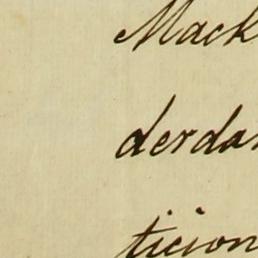 Mack
derdan
ticion